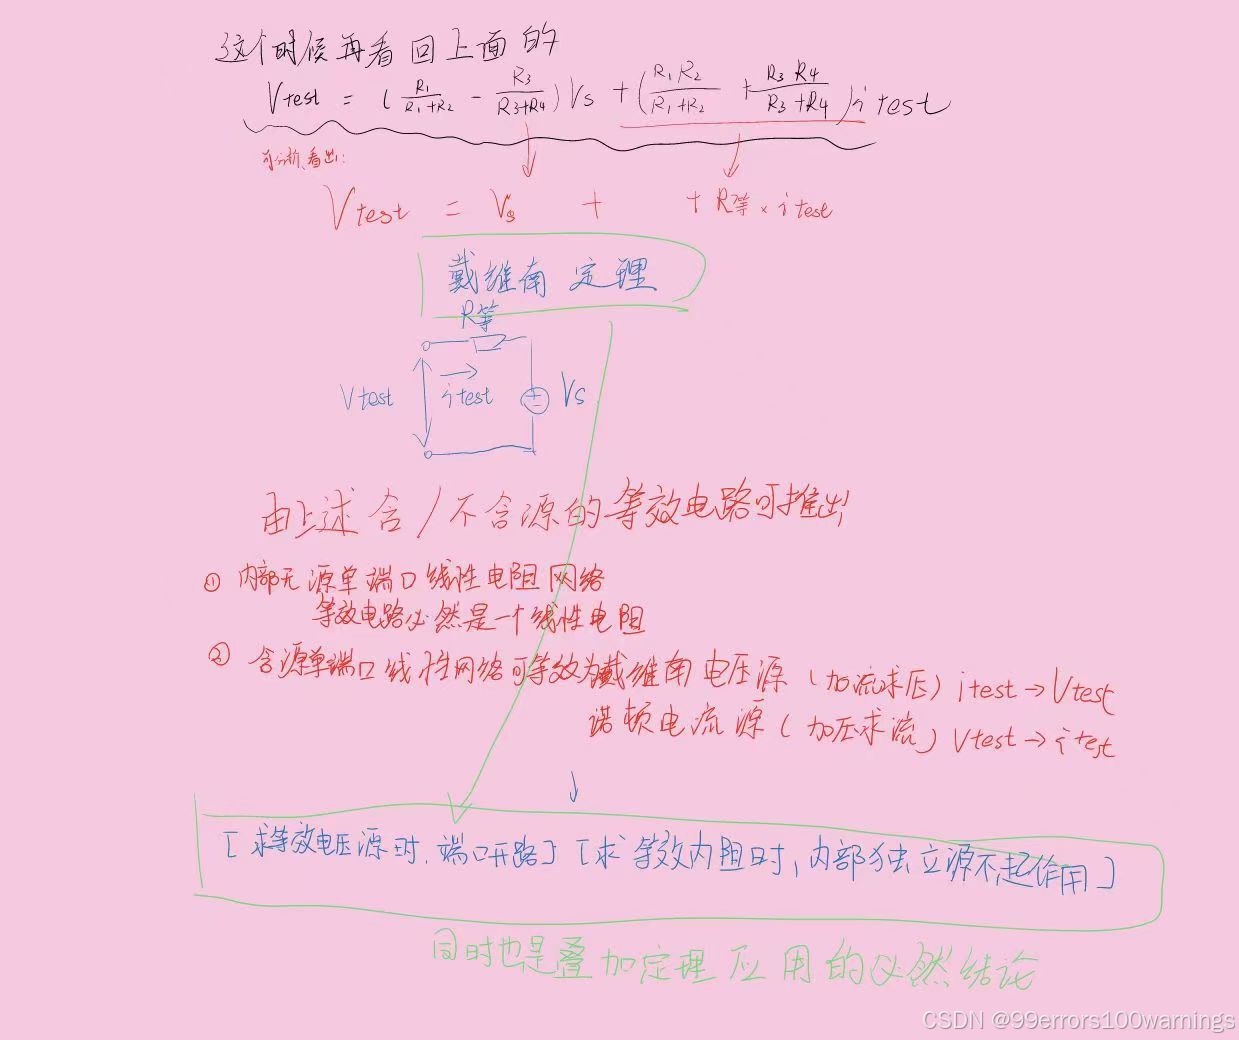 这个时候再看回上面的
Vtest = (R1/(R1+R2) - R3/(R3+R4))Vs + (R1R2/(R1+R2) + R3R4/(R3+R4))itest
可分析看出:
Vtest = Vs + + R等×itest
戴维南定理
R等
Vtest itest Vs
由上述含/不含源的等效电路可推出
① 内部无源单端口线性电阻网络
等效电路必然是一个线性电阻
② 含源单端口线性网络可等效为戴维南电压源(加流求压)itest→Vtest
诺顿电流源(加压求流)Vtest→itest
[求等效电压源时,端口开路][求等效内阻时,内部独立源不起作用]
同时也是叠加定理应用的必然结论
CSDN @99errors100warnings